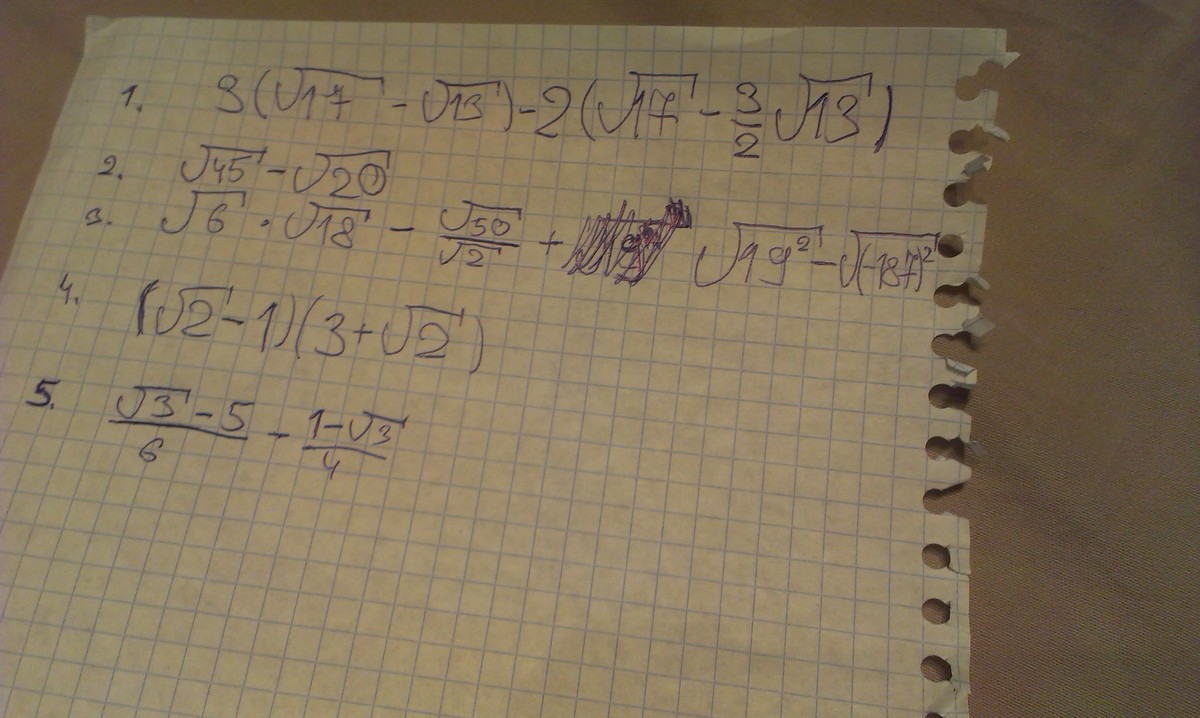 1. 3(√17 - √13) - 2(√17 - 3/2 √13)
2. √45 - √20
3. √6 · √18 - √50/√2 + √19² - √(-187)²
4. (√2 - 1)(3 + √2)
5. (√3 - 5)/6 - (1 - √3)/4